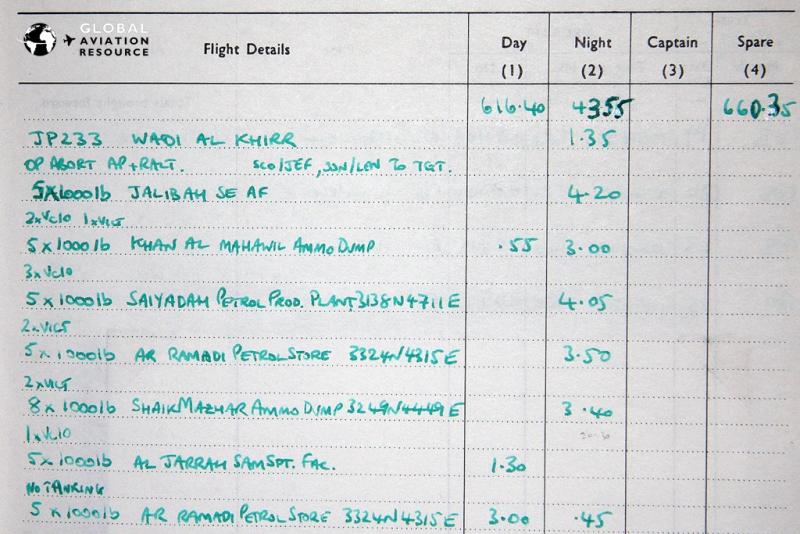 GLOBAL
AVIATION
RESOURCE
Flight Details Day Night Captain Spare
(1) (2) (3) (4)
616.40 4355 660.35
JP233 WADI AL KHIRR 1.35
OP ABORT AP+RALT. SCO/JEF, SON/LEN TO TGT.
5x1000lb JALIBAH SE AF 4.20
2xVC10 1xVICT
5x1000lb KHAN AL MAHAWIL AMMO DUMP .55 3.00
3xVC10
5x1000lb SAIYADAH PETROL PROD. PLANT 3138N4711E 4.05
2xVICT
5x1000lb AR RAMADI PETROL STORE 3324N4315E 3.50
2xVICT
8x1000lb SHAIK MAZHAR AMMO DUMP 3249N4449E 3.40
1xVC10
5x1000lb AL JARRAH SAM SPT. FAC. 1.30
NO TANKING
5x1000lb AR RAMADI PETROL STORE 3324N4315E 3.00 .45